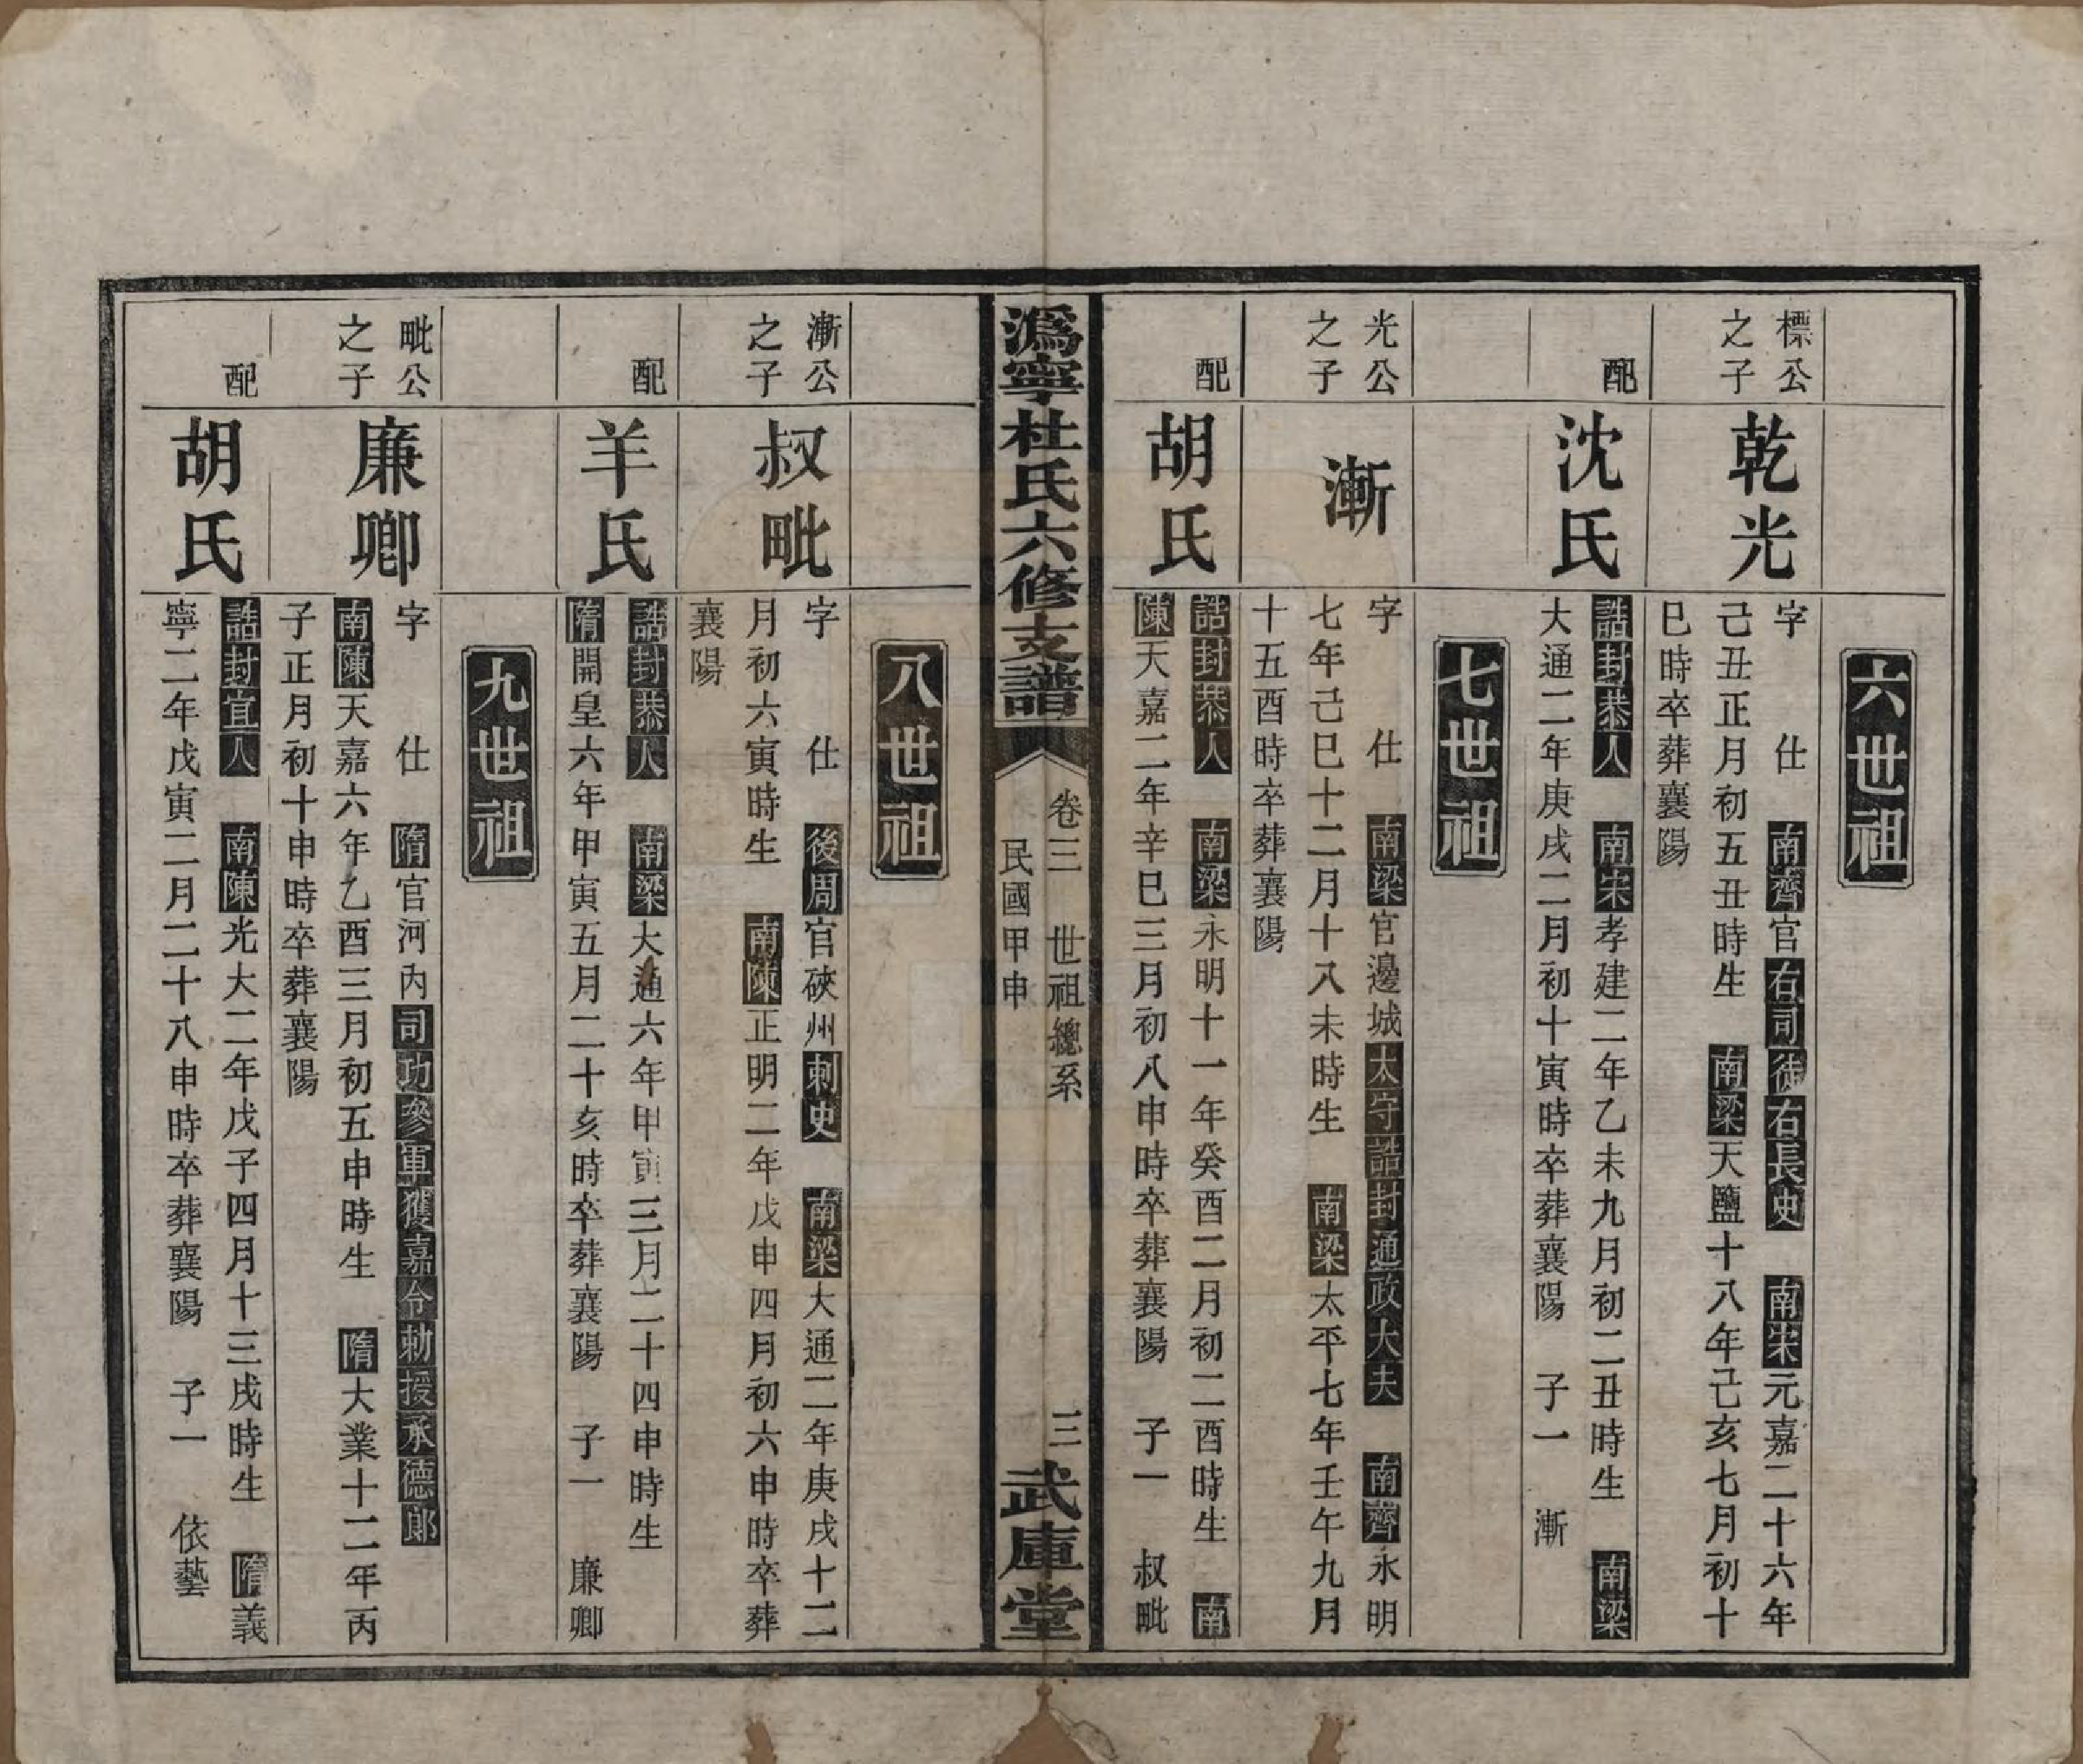 六世祖
標公之子
乾光
字 仕 南齊官右司徒右長史 南宋元嘉二十六年
己丑正月初五丑時生 南梁天鹽十八年己亥七月初十
巳時卒葬襄陽
配
沈氏
誥封恭人 南宋孝建二年乙未九月初二丑時生 南梁
大通二年庚戌二月初十寅時卒葬襄陽 子一 漸
七世祖
光公之子
漸
字 仕 南梁官邊城太守誥封通政大夫 南齊永明
七年己巳十二月十八未時生 南梁太平七年壬午九月
十五酉時卒葬襄陽
配
胡氏
誥封恭人 南梁永明十一年癸酉二月初二酉時生 南
陳天嘉二年辛巳三月初八申時卒葬襄陽 子一 叔毗
溈寧杜氏六修支譜
卷三 世祖總系 三
民國甲申
武庫堂
八世祖
漸公之子
叔毗
字 仕 後周官硤州刺史 南梁大通二年庚戌十二
月初六寅時生 南陳正明二年戊申四月初六申時卒葬
襄陽
配
羊氏
誥封恭人 南梁大通六年甲寅三月二十四申時生
隋開皇六年甲寅五月二十亥時卒葬襄陽 子一 廉卿
九世祖
毗公之子
廉卿
字 仕 隋官河內司功參軍獲嘉令勅授承德郎
南陳天嘉六年乙酉三月初五申時生 隋大業十二年丙
子正月初十申時卒葬襄陽
配
胡氏
誥封宜人 南陳光大二年戊子四月十三戌時生 隋義
寧二年戊寅二月二十八申時卒葬襄陽 子一 依藝